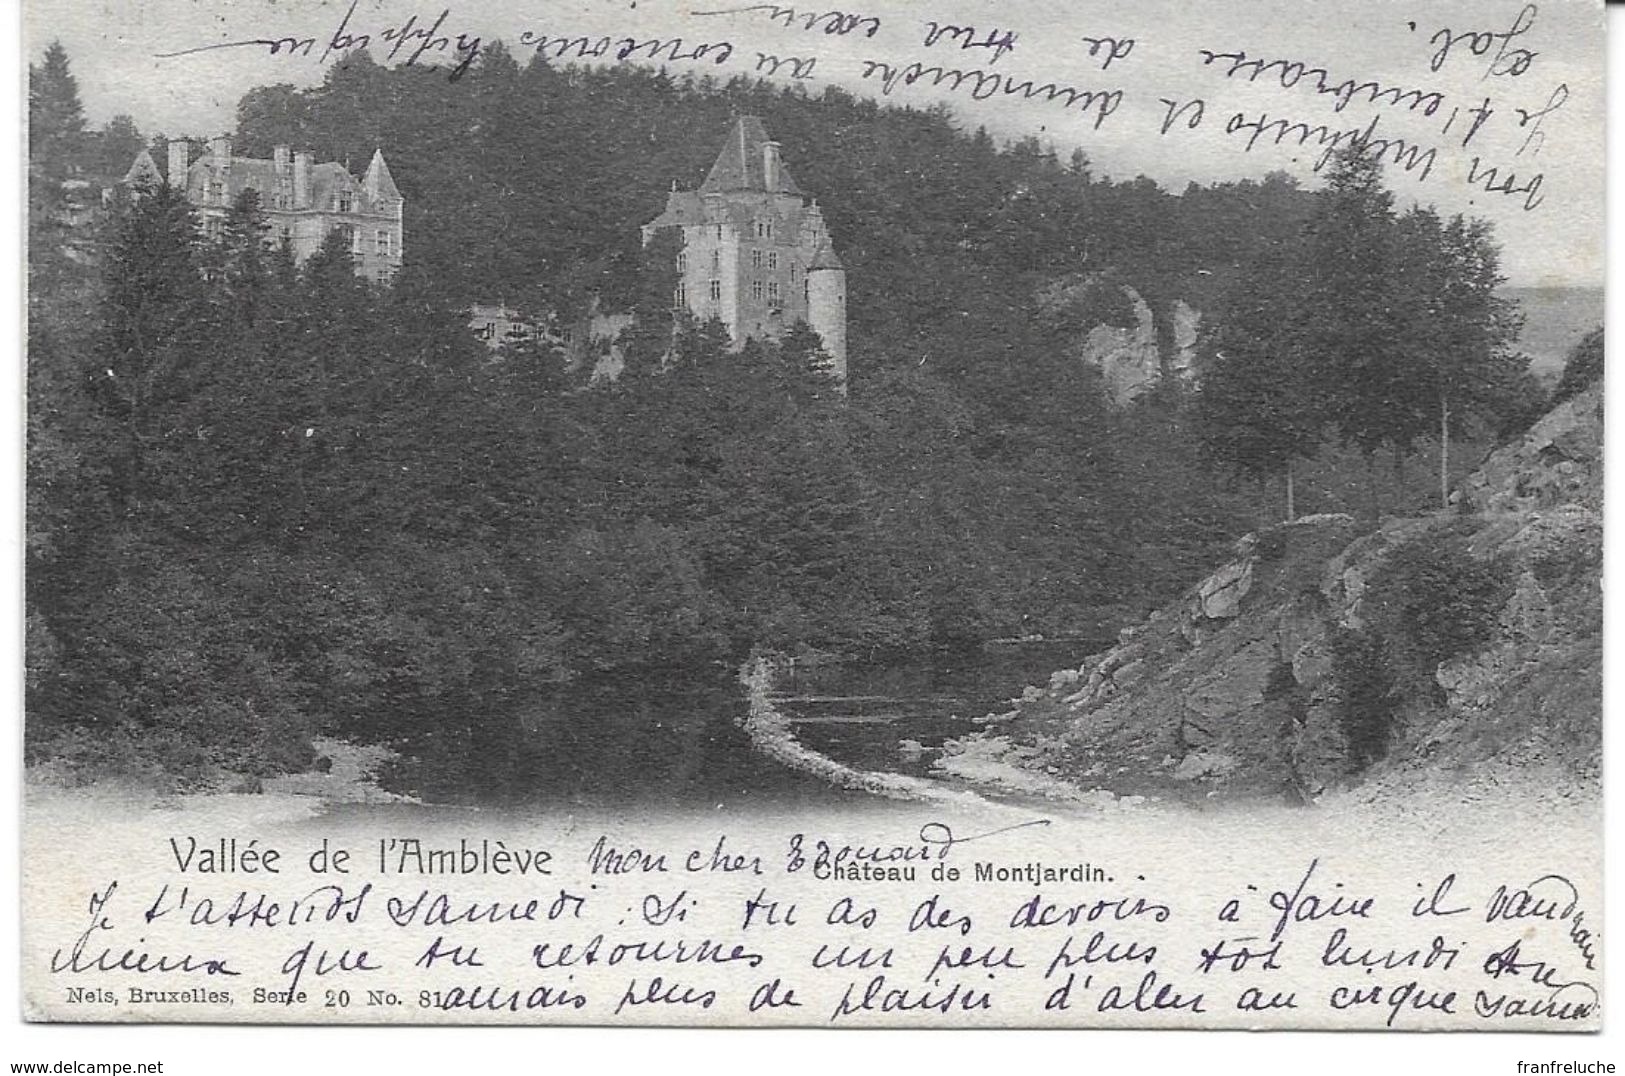 Vallée de l'Amblève Mon cher Edouard
Château de Montjardin.
Je t'attends samedi. Si tu as des devoirs à faire il vaudrait
mieux que tu retournes un peu plus tôt lundi tu
Nels, Bruxelles, Serie 20 No. 81
aurais plus de plaisir d'aller au cirque samedi
voir Mephisto et dimanche au concours hippique
Je t'embrasse de tout cœur
Gal.
www.delcampe.net
franfreluche